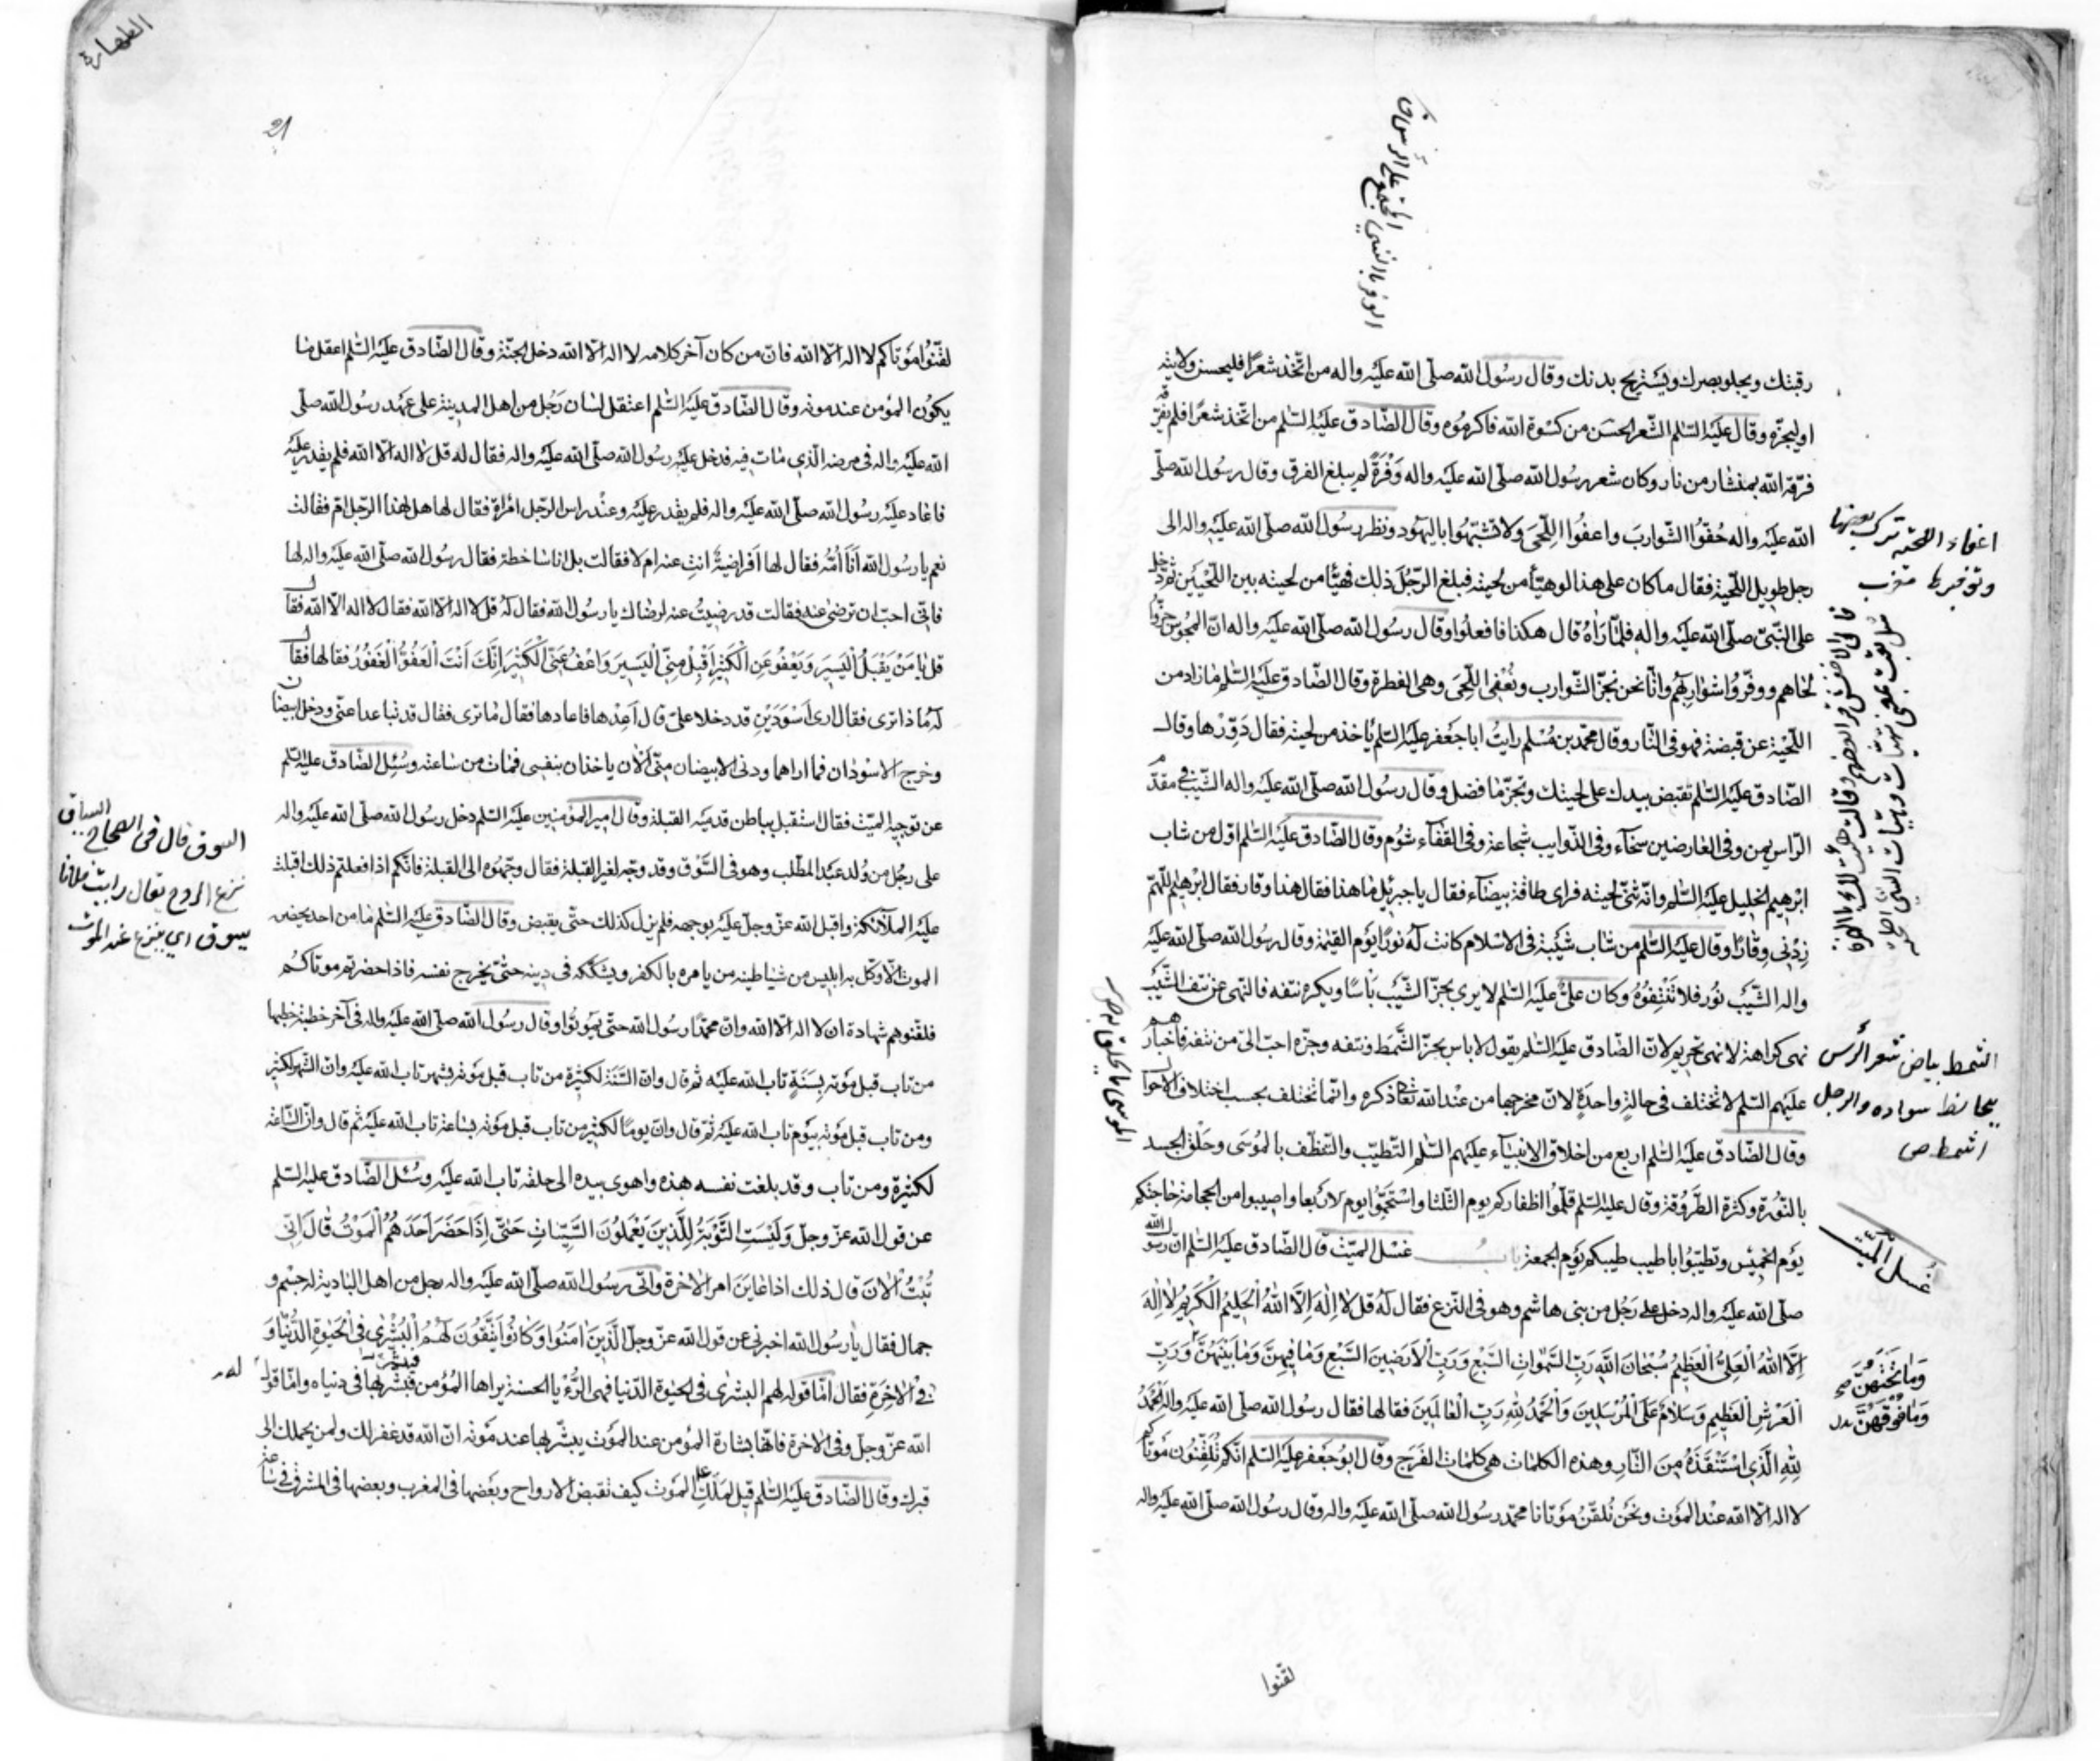 رقبتك ويجلو بصرك ويستريح بدنك وقال رسول الله صلّى الله عليه واله من اتّخذ شعرًا فليحسن ولايته
او ليجزّه وقال عليه السّلم الشّعر الحسن من كسوة الله فاكرموه وقال الصّادق عليه السّلم من اتّخذ شعرًا فلم يفرّقه
فرّقه الله بمنشار من نار وكان شعر رسول الله صلّى الله عليه واله وَفْرَةً لم يبلغ الفرق وقال رسول الله صلّى
الله عليه واله حُفّوا الشّوارب واعفُوا اللّحَى ولا تشبّهُوا باليهود ونظر رسول الله صلّى الله عليه واله الى
رجل طويل اللّحية فقال ما كان على هذا لو هيّأ من لحيته فبلغ الرّجُل ذلك فهيّأ من لحيته بين اللّحيتين ثم دخل
على النّبيّ صلّى الله عليه واله فلمّا رَاهُ قال هكذا فافعلوا وقال رسول الله صلّى الله عليه واله انّ المجوس جزّوا
لحاهم ووفّروُا شواربهُم وانّا نحن نجزّ الشّوارب ونُعْفى اللّحَى وهى الفطرة وقال الصّادق عليه السّلم ما زاد من
اللّحية عن قبضة فهو فى النّار وقال محمّد بن مُسْلم رايتُ ابا جَعْفر عليه السّلم يأخذ من لحيته فقال دَوّرْها وقال
الصّادق عليه السّلم تقبض بيدك على لحيتك وتجزّ ما فضل وقال رسُول الله صلّى الله عليه واله الشّيب فى مقدّم
الرّاس يمن وفى العارضين سخآء وفى الذّوايب شجاعة وفى القفآء شوُم وقال الصّادق عليه السّلم اوّل من شاب
ابرهيم الخليل عليه السّلم وانّه ثنّى لحيته فراى طاقة بيضآء فقال يا جبرئيل ما هذا فقال هذا وقار فقال ابرهيم اللّهمّ
زِدْنى وِقارًا وقال عليه السّلم من شاب شَيْبة فى الاسْلام كانت له نورًا يوم القيمة وقال رسول الله صلّى الله عليه
واله الشّيْب نوُر فلا تَنْتِفوُهُ وكان علىّ عليه السّلم لا يرى بجزّ الشّيْب بَاْسًا ويكره نتفه فالنّهى عن نتف الشّيْب
نهى كراهة لا نهى تحريم لانّ الصّادق عليه السّلم يقول لا باس بجزّ الشَّمَط ونتفه وجزّه احبّ الىّ من نتفه فاخبارهم
عليهم السّلم لا تختلف فى حالة واحدةٍ لانّ مخرجها من عند الله تعا ذكره وانّما تختلف بحسب اختلاف الاحوال
وقال الصّادق عليه السّلم اربع من اخلاق الانبيآء عليهم السّلم التّطيّب والتّنظّف بالمُوسَى وحَلْق الجسد
بالنّوُرة وكثرة الطَّرُوقة وقال عليه السّلم قلّموُا اظفاركم يوم الثّلثا واسْتَحِمّوُا يوم لاَربعا واصيبوا من الحجامة حاجتكم
يوْم الخميس وتطيّبُوا باطيب طيبكم يوْم الجمعة باب غسل الميّت قال الصّادق عليه السّلم انّ رسول الله
صلّى الله عليه واله دخل على رَجُل من بنى هاشم وهو فى النّزع فقال له قل لا اِلهَ اِلاَّ اللهُ الْحَليمُ الْكَريمُ لا اِلهَ
اِلاَّ اللهُ الْعَلِىُّ الْعَظيمُ سُبْحانَ اللهِ رَبِّ السَّموٰاتِ السَّبْعِ وَرَبِّ الْاَرَضينَ السَّبْعِ وَمٰا فيهِنَّ وَمٰا بَيْنَهُنَّ وَرَبِّ
الْعَرْشِ الْعَظيمِ وَسَلامٌ عَلَى الْمُرْسَلينَ وَالْحَمْدُ للهِ رَبِّ الْعٰالَمينَ فقالها فقال رسُول الله صلّى الله عليه واله الْحَمْدُ
للهِ الَّذِى اسْتَنْقَذَهُ مِنَ النّٰارِ وهذه الكلمات هى كلمات الفَرَج وقال ابوُ جَعْفر عليه السّلم انّكم تُلَقّنُون مَوْتاكم
لا اله الّا الله عنْد الموْت ونَحْن نُلَقّنُ موْتانا محمّد رسول الله صلّى الله عليه واله وقال رسول الله صلّى الله عليه واله
لقّنوا
اعفاء اللحية ترك بعضها
وتوفيرها مغرب
الشمط بياض شعر الرأس
يخالط سواده والرجل
اشمط ص
غسل الميّت
وَمٰا تَحْتَهُنَّ
وَمٰا فَوْقَهُنَّ
الموسى ما يحلق به ص
الطهارة
21
لقّنوُا موْتاكم لا اله الّا الله فانّ من كان آخر كلامه لا اله الّا الله دخل الجنّة وقال الصّادق عليه السّلم اعقل ما
يكوُن المؤمن عند موته وقال الصّادق عليه السّلم اعتقل لسان رَجُل من اهل المدينة على عهد رسول الله صلّى
الله عليه واله فى مرضه الّذى مات فيه فدخل عليه رسول الله صلّى الله عليه واله فقال له قل لا اله الّا الله فلم يقدر عليه
فاعاد عليه رسُول الله صلّى الله عليه واله فلم يقدر عليه وعند راس الرّجل امْراة فقال لها هل لهذا الرّجل امّ فقالت
نعم يا رسُول الله اَنَا اُمُّه فقال لها اَفَراضيةٌ انتِ عنه ام لا فقالت بل انا ساخطة فقال رسُول الله صلّى الله عليه واله لها
فانّى احبّ ان ترضى عنه فقالت قد رضيتُ عنه لرضاك يا رسُول الله فقال لهُ قُل لا اله الّا الله فقال لا اله الّا الله فقال
قل يٰا مَنْ يَقْبَلُ الْيَسيرَ وَيَعْفُو عَنِ الْكَثيرِ اِقْبَلْ مِنّى الْيَسيرَ وَاعْفُ عَنِّى الْكَثيرَ اِنَّكَ اَنْتَ الْعَفُوُّ الْغَفُورُ فقالها فقال
لهُ ماذا ترى فقال ارى اَسْوَدَيْنِ قد دخلا علىّ قال اَعِدْها فاعادها فقال ما ترى فقال قد تباعدا عنّى ودخل ابيضان
وخرج الاسْودان فما اراهما ودنى الابيضان منّى الْان ياخذان بنفسى فمات من ساعته وسُئِل الصّادق عليه السّلم
عن توجيه الميّت فقال اسْتقبل بباطن قدميه القبلة وقال امير المؤمنين عليه السّلم دخل رسول الله صلّى الله عليه واله
على رجُل من وُلد عبْد المطّلب وهو فى السَّوْق وقد وجّه لغير القبلة فقال وجّهوُه الى القبلة فانّكم اذا فعلتم ذلك اقبلت
عليه الملآئكة واقبل الله عزّ وجلّ عليه بوجهه فلم يزل كذلك حتّى يقبض وقال الصّادق عليه السّلم ما من احد يحضره
الموت الّا وكّل به ابليس من شياطينه من يامره بالكفر ويشكّكه فى دينه حتّى يخرج نفسه فاذا حضرتم موتاكُم
فلقّنوهم شهادة ان لا اله الّا الله وانّ محمّدًا رسول الله حتّى يموتوُا وقال رسول الله صلّى الله عليه واله فى آخر خطبة خطبها
من تاب قبل موْته بِسَنَةٍ تاب الله عليْه ثم قال وانّ السَّنَة لكثيرة من تاب قبل موْته بشهر تاب الله عليه وانّ الشّهر لكثير
ومن تاب قبل موْته بيَوْم تاب الله عليه ثم قال وانّ يومًا لكثير من تاب قبل موْته بساعة تاب الله عليه ثم قال وانّ السّاعة
لكثيرة ومن تاب وقد بلغت نفسه هذه واهوى بيده الى حلقه تاب الله عليه وسُئل الصّادق عليه السّلم
عن قول الله عزّ وجلّ وَلَيْسَتِ التَّوْبَةُ لِلَّذينَ يَعْمَلُونَ السَّيِّئاتِ حَتّى اِذٰا حَضَرَ اَحَدَهُمُ الْمَوْتُ قٰالَ اِنّى
تُبْتُ الْاٰنَ قال ذلك اذا عايَنَ امر الاخرة واتى رسُول الله صلّى الله عليه واله رجل من اهل البادية له جسْم و
جمال فقال يا رسُول الله اخبرنى عن قول الله عزّ وجلّ الَّذينَ اٰمَنُوا وَكٰانُوا يَتَّقُونَ لَهُمُ الْبُشْرٰى فِى الْحَيٰوةِ الدُّنْيٰا وَ
فِى الْاٰخِرَةِ فقال امّا قوله لهم البشرى فى الحيوة الدّنيا فهى الرُّؤْيا الحسنة يراها المؤْمن فيبشّر بها فى دنياه وامّا قول
الله عزّ وجلّ وفى الاخرة فانّها بشارة المؤمن عند الموْت يبشّر بها عند موْته انّ الله قد غفر لك ولمن يحملك الى
قبرك وقال الصّادق عليه السّلم قيل لمَلَكِ الموْت كيف تقبض الارواح وبعْضها فى المغرب وبعضها فى المشرق فى ساعة
السوق قال فى الصحاح السياق
نزع الروح يقال رايت فلانا
يسوق اى ينزع عند الموت